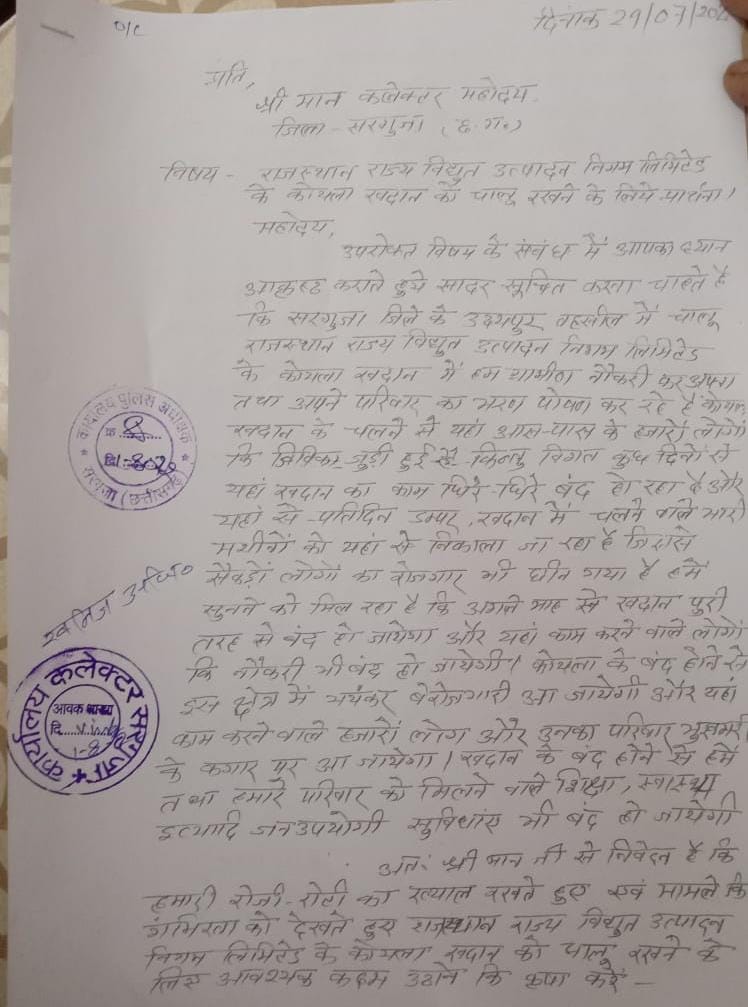 O/C
दिनांक 29/07/202
प्रति,
श्री मान कलेक्टर महोदय.
जिला - सरगुजा (छ.ग.)
विषय - राजस्थान राज्य विद्युत उत्पादन निगम लिमिटेड
के कोयला खदान को चालू रखने के लिये प्रार्थना।
महोदय,
उपरोक्त विषय के संबंध में आपका ध्यान
आकृष्ट कराते हुये सादर सूचित करना चाहते है
कि सरगुजा जिले के उदयपुर तहसील में चालू
राजस्थान राज्य विद्युत उत्पादन निगम लिमिटेड
के कोयला खदान में हम ग्रामीण नौकरी कर अपना
तथा अपने परिवार का भरण पोषण कर रहे है कोयला
खदान के चलने से यहां आस-पास के हजारों लोगों
कि जिविका जुड़ी हुई है किन्तु विगत कुछ दिनों से
यहां खदान का काम धिरे-धिरे बंद हो रहा है और
यहां से प्रतिदिन डम्पर, खदान में चलने वाले भारी
मशीनों को यहां से निकाला जा रहा है जिससे
सैकड़ों लोगों का रोजगार भी छीन गया है हमें
सुनने को मिल रहा है कि अगले माह से खदान पुरी
तरह से बंद हो जायेगा और यहां काम करने वाले लोगों
कि नौकरी भी बंद हो जायेगी। कोयला के बंद होने से
इस क्षेत्र में भयंकर बेरोजगारी आ जायेगी और यहां
काम करने वाले हजारों लोग और उनका परिवार भुखमरी
के कगार पर आ जायेगा। खदान के बंद होने से हमें
तथा हमारे परिवार को मिलने वाले शिक्षा, स्वास्थ्य
इत्यादि जनउपयोगी सुविधांए भी बंद हो जायेगी
अतः श्री मान जी से निवेदन है कि
हमारी रोजी-रोटी का ख्याल रखते हुए एवं मामले कि
गंभिरता को देखते हुए राजस्थान राज्य विद्युत उत्पादन
निगम लिमिटेड के कोयला खदान को चालू रखने के
लिए आवश्यक कदम उठाने कि कृपा करें -
कार्यालय पुलिस अधीक्षक
क्र. 8
दि. 1-8-22
सरगुजा (छत्तीसगढ़)
खनिज अधि०
कार्यालय कलेक्टर सरगुजा
आवक शाखा
दि.
1-8